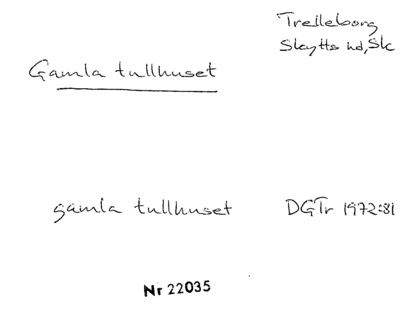 Trelleborg
Skytts hd, Sk
Gamla tullhuset
gamla tullhuset DGTr 1972:81
Nr 22035